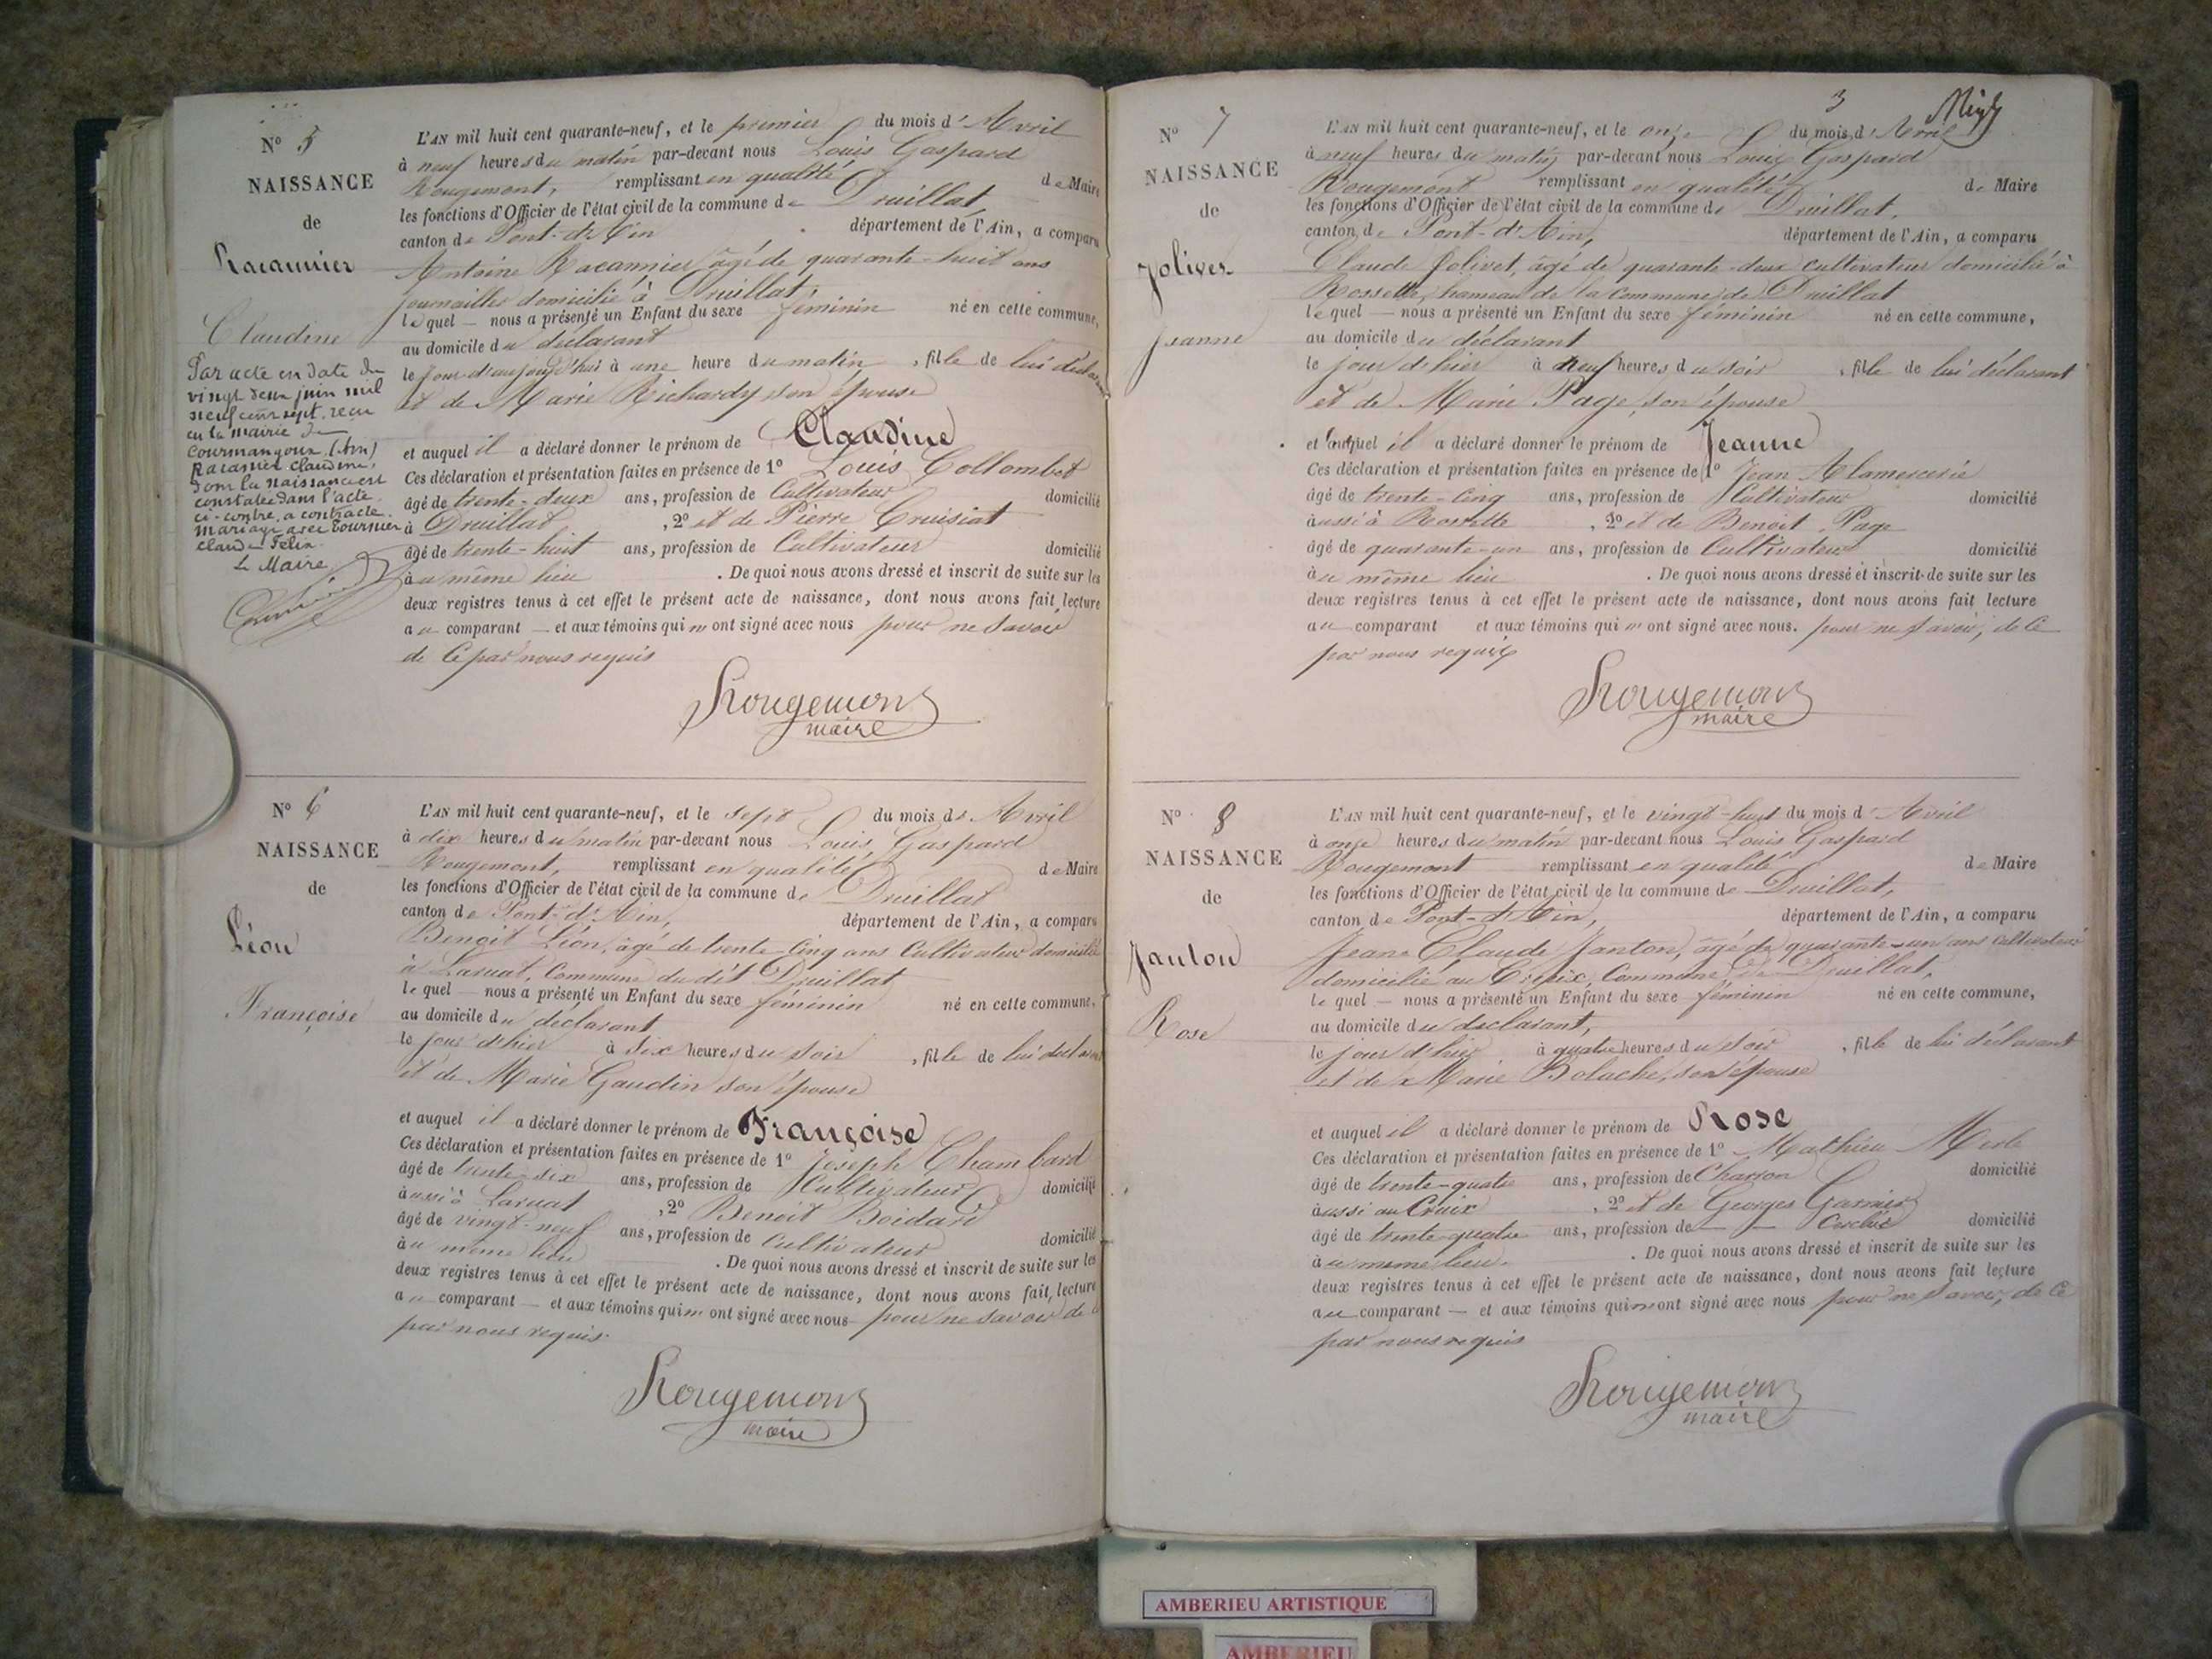 N° 5
NAISSANCE
de
Racannier
Claudine
Par acte en date du
vingt deux juin mil
neuf cent sept, reçu
en la mairie de
Courmangoux (Ain)
Racannier Claudine,
dont la naissance est
constatée dans l'acte
ci-contre, a contracté
mariage avec Tournier
Claude Félix.
Le Maire
L'AN mil huit cent quarante-neuf, et le premier du mois d'Avril
à neuf heures du matin par-devant nous Louis Gaspard
Rougemont, remplissant en qualité de Maire
les fonctions d'Officier de l'état civil de la commune de Druillat,
canton de Pont-d'Ain département de l'Ain, a comparu
Antoine Racannier âgé de quarante-huit ans
journaillier domicilié à Druillat,
lequel — nous a présenté un Enfant du sexe féminin né en cette commune,
au domicile du déclarant
le jour d'aujourd'hui à une heure du matin, fille de lui déclarant
et de Marie Richardy son épouse
et auquel il a déclaré donner le prénom de Claudine
Ces déclaration et présentation faites en présence de 1° Louis Collombet
âgé de trente-deux ans, profession de Cultivateur domicilié
à Druillat, 2° et de Pierre Cruisiat
âgé de trente-huit ans, profession de Cultivateur domicilié
au même lieu. De quoi nous avons dressé et inscrit de suite sur les
deux registres tenus à cet effet le présent acte de naissance, dont nous avons fait lecture
au comparant — et aux témoins qui n'ont signé avec nous pour ne savoir
de ce par nous requis
Rougemont
maire
N° 6
NAISSANCE
de
Léon
Françoise
L'AN mil huit cent quarante-neuf, et le sept du mois d'Avril
à dix heures du matin par-devant nous Louis Gaspard
Rougemont, remplissant en qualité de Maire
les fonctions d'Officier de l'état civil de la commune de Druillat
canton de Pont-d'Ain, département de l'Ain, a comparu
Benoit Léon, âgé de trente-cinq ans Cultivateur domicilié
à Laruat, Commune du dit Druillat
lequel — nous a présenté un Enfant du sexe féminin né en cette commune,
au domicile du déclarant
le jour d'hier à six heures du soir, fille de lui déclarant
et de Marie Gaudin son épouse
et auquel il a déclaré donner le prénom de Françoise
Ces déclaration et présentation faites en présence de 1° Joseph Chambard
âgé de trente-six ans, profession de Cultivateur domicilié
aussi à Laruat, 2° Benoit Boidard
âgé de vingt-neuf ans, profession de Cultivateur domicilié
au même lieu. De quoi nous avons dressé et inscrit de suite sur les
deux registres tenus à cet effet le présent acte de naissance, dont nous avons fait lecture
au comparant — et aux témoins qui n'ont signé avec nous pour ne savoir de ce
par nous requis.
Rougemont
maire
3
N° 7
NAISSANCE
de
Jolivet
Jeanne
L'AN mil huit cent quarante-neuf, et le onze du mois d'Avril
à neuf heures du matin par-devant nous Louis Gaspard
Rougemont remplissant en qualité de Maire
les fonctions d'Officier de l'état civil de la commune de Druillat,
canton de Pont-d'Ain, département de l'Ain, a comparu
Claude Jolivet, âgé de quarante-deux Cultivateur domicilié à
Rossette, hameau de la Commune de Druillat
lequel — nous a présenté un Enfant du sexe féminin né en cette commune,
au domicile du déclarant
le jour d'hier à neuf heures du soir, fille de lui déclarant
et de Marie Page, son épouse
et auquel il a déclaré donner le prénom de Jeanne
Ces déclaration et présentation faites en présence de 1° Jean Alamercerie
âgé de trente-cinq ans, profession de Cultivateur domicilié
aussi à Rossette, 2° et de Benoit Page
âgé de quarante-un ans, profession de Cultivateur domicilié
au même lieu. De quoi nous avons dressé et inscrit de suite sur les
deux registres tenus à cet effet le présent acte de naissance, dont nous avons fait lecture
au comparant et aux témoins qui n'ont signé avec nous. pour ne savoir, de ce
par nous requis
Rougemont
maire
N° 8
NAISSANCE
de
Janton
Rose
L'AN mil huit cent quarante-neuf, et le vingt-huit du mois d'Avril
à onze heures du matin par-devant nous Louis Gaspard
Rougemont remplissant en qualité de Maire
les fonctions d'Officier de l'état civil de la commune de Druillat,
canton de Pont-d'Ain, département de l'Ain, a comparu
Jean Claude Janton, âgé de quarante-un ans cultivateur
domicilié au Croix, Commune de Druillat,
lequel — nous a présenté un Enfant du sexe féminin né en cette commune,
au domicile du declarant,
le jour d'hier à quatre heures du soir, fille de lui déclarant
et de Marie Bolache, son épouse
et auquel il a déclaré donner le prénom de Rose
Ces déclaration et présentation faites en présence de 1° Mathieu Merle
âgé de trente-quatre ans, profession de Charron domicilié
aussi au Croix, 2° et de Georges Garnier
âgé de trente-quatre ans, profession de domicilié
au même lieu. De quoi nous avons dressé et inscrit de suite sur les
deux registres tenus à cet effet le présent acte de naissance, dont nous avons fait lecture
au comparant — et aux témoins qui n'ont signé avec nous pour ne savoir, de ce
par nous requis
Rougemont
maire
AMBERIEU ARTISTIQUE
AMBERIEU